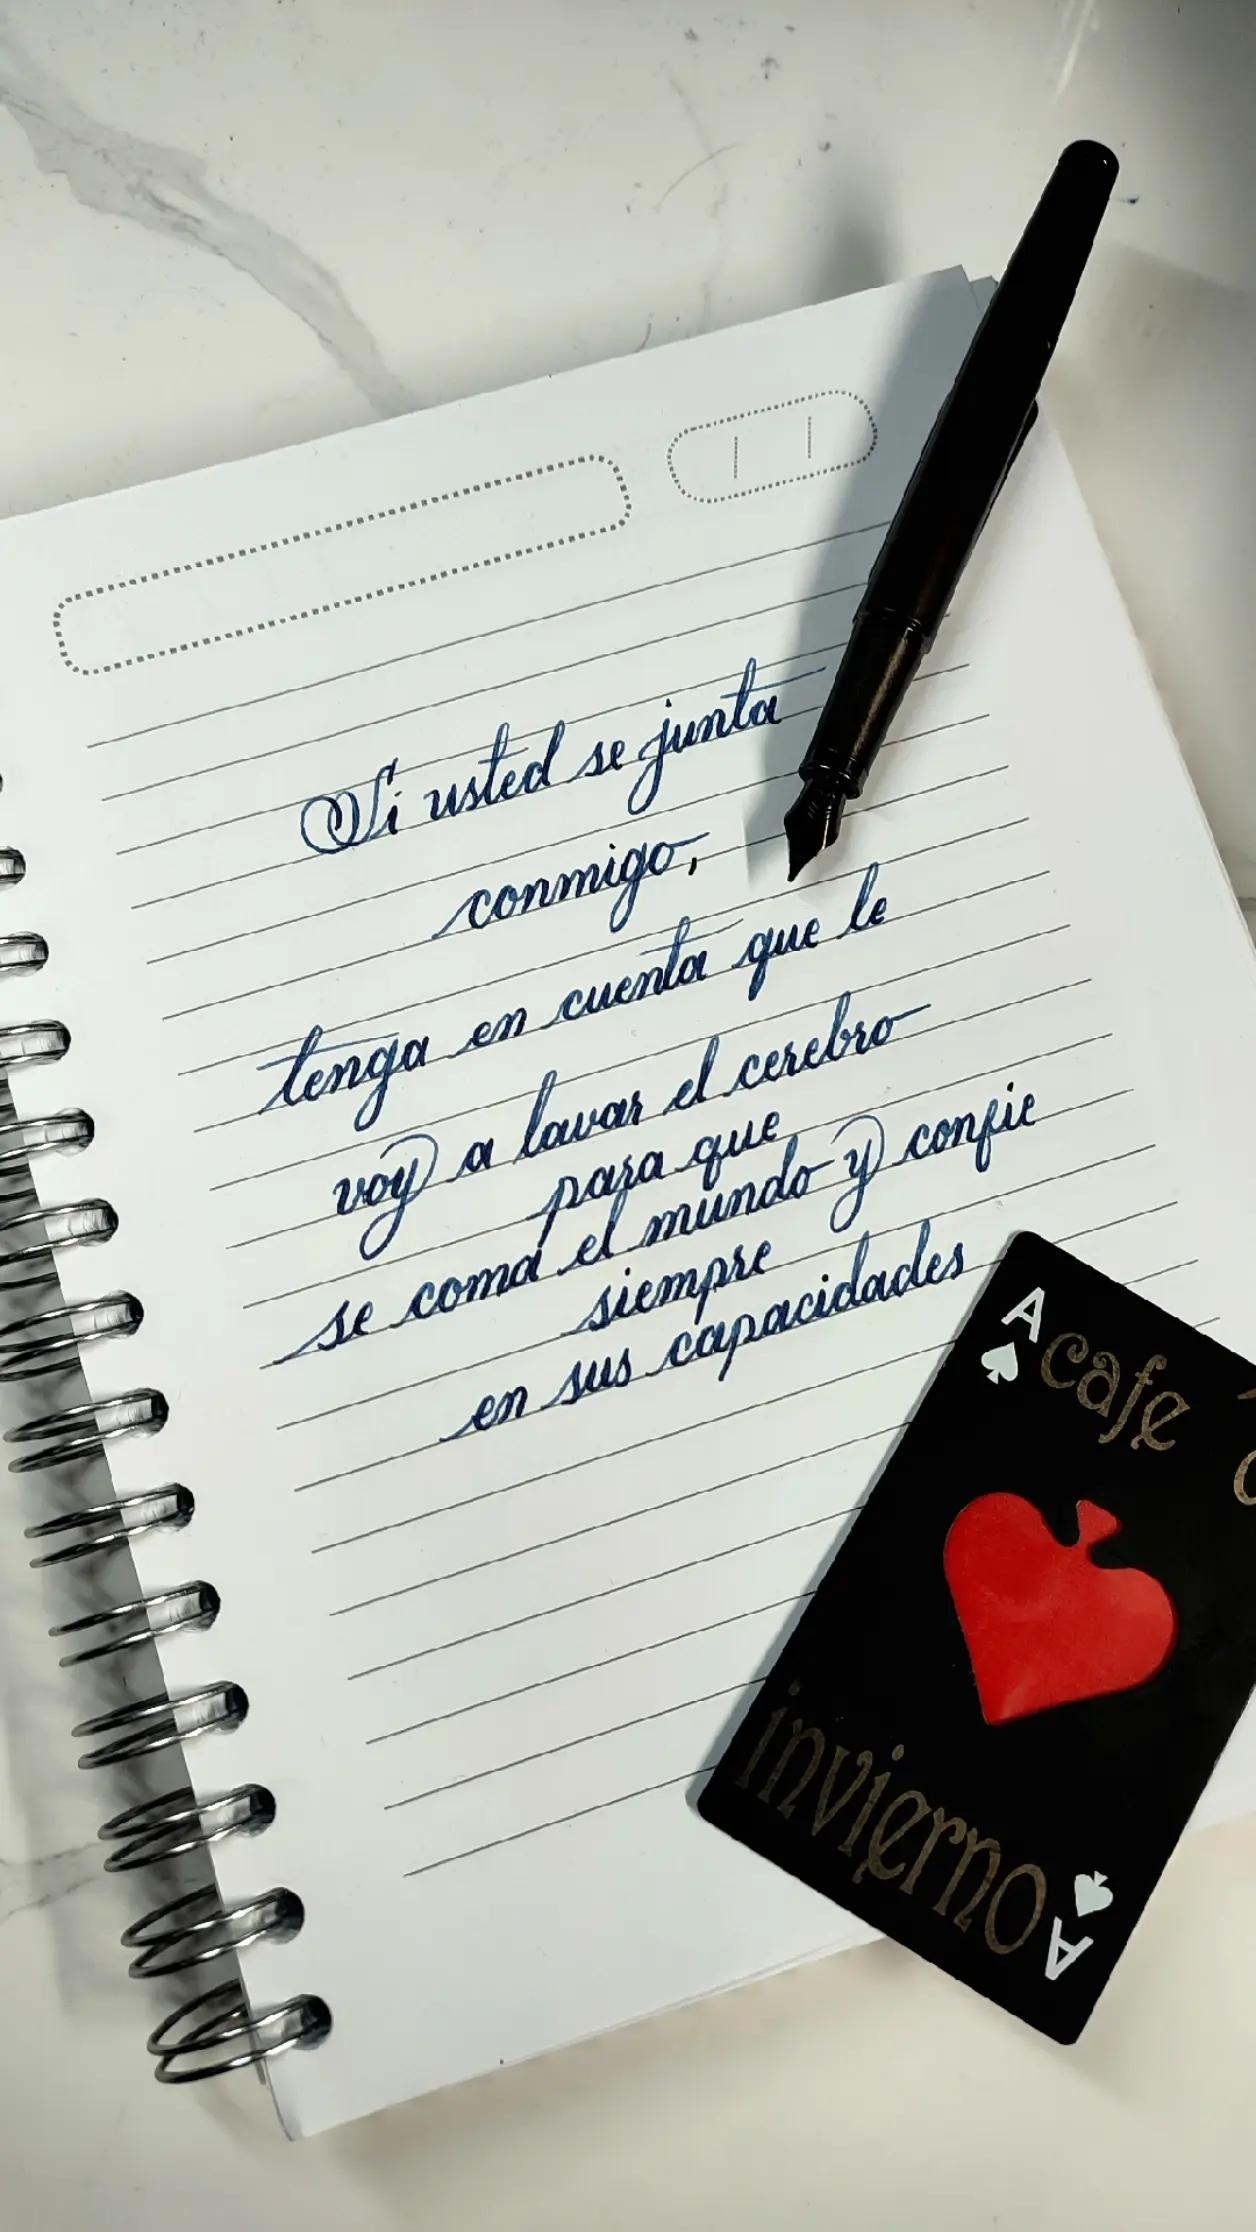 Si usted se junta
conmigo,
tenga en cuenta que le
voy a lavar el cerebro
para que
se coma el mundo y confie
siempre
en sus capacidades
A
cafe
invierno
A